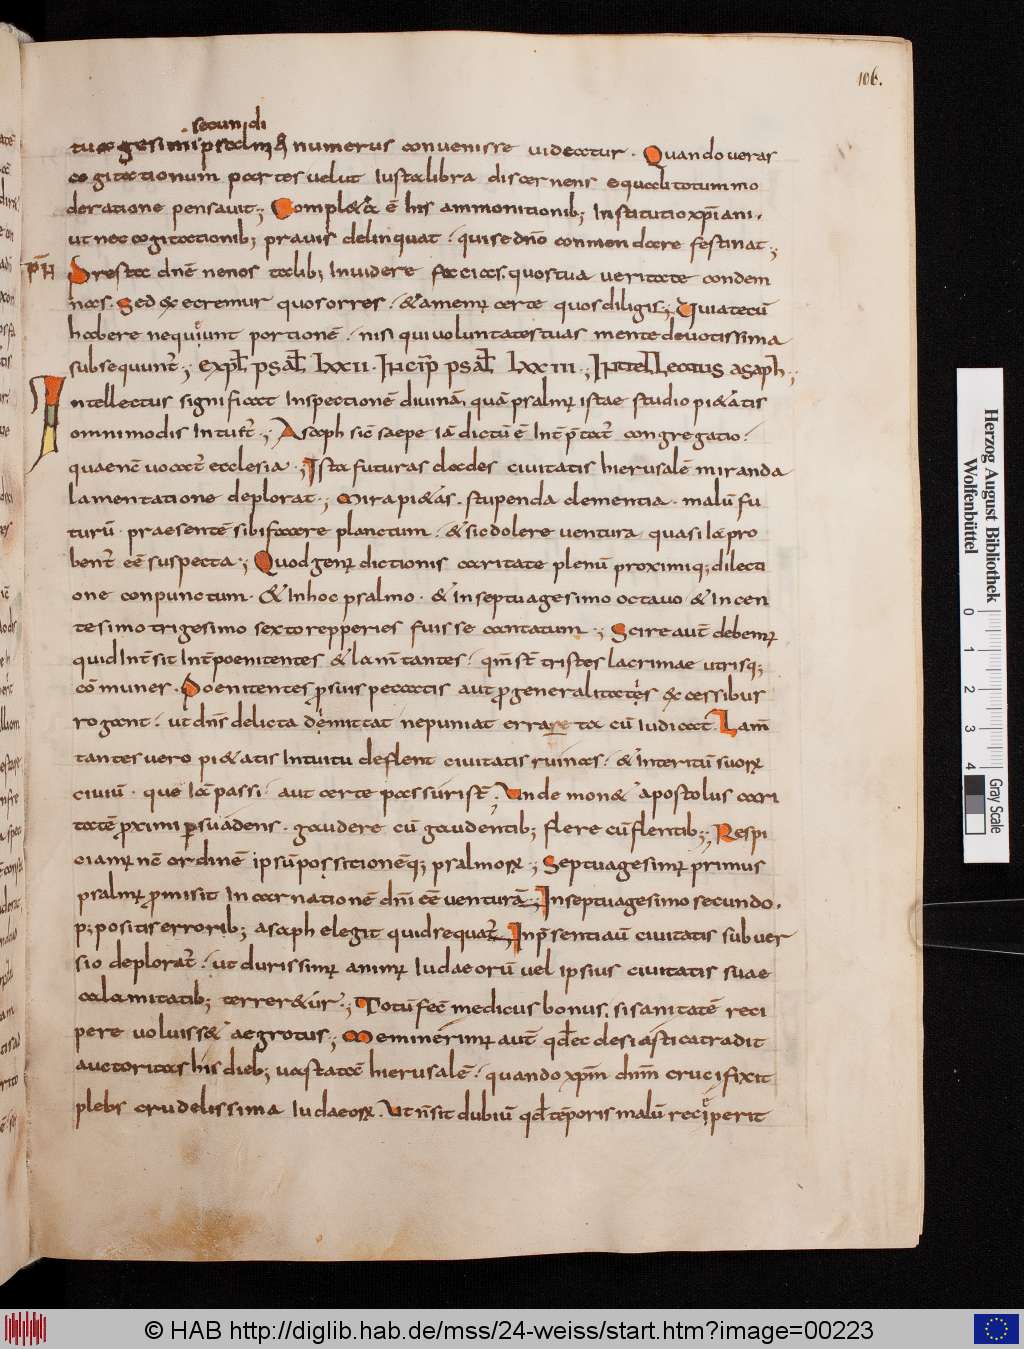 106.
secundi
tuagesimi psalmi numerus convenisse videatur. Quando veras
cogitationum partes velut iusta libra discernens equali totum mo
deratione pensavit; Complexa ē his ammonitionib; Institutio xp̄iani.
ut nec cogitationib; pravis delinquat. qui se dn̄o commendare festinat;
Praesta dn̄e ne nos talib; Invidere facias. quos tua veritate condem
nas. Sed execremur quos orres. & amem; certe quos diligis; Quia tecū
habere nequeunt portionē. nisi qui voluntates tuas mente devotissima
subsequunt̄; expl̄ psal̄ lxxii. Incip̄ psal̄ lxxiii; Intellectus asaph;
Intellectus significat Inspectionē divinā, quā psalm; istae studio pi&atis
omnimodis Intuet̄; Asaph sic̄ saepe iā dictū ē Int̄p̄tat̄ congregatio.
quae nc̄ vocat̄ ecclesia; Ista futuras clades civitatis hierusalē miranda
lamentatione deplorat; Mira pi&as. stupenda clementia. malū fu
turū. praesentē sibi facere planctum. & sic dolere ventura quasi iā pro
bent̄ eē suspecta; Quod gen; dictionis caritate plenū proximiq; dilecti
one conpunctum. & In hoc psalmo. & In septuagesimo octavo & In cen
tesimo trigesimo sexto repperies fuisse cantatum; Scire aut̄ debem;
quid Int̄sit Int̄ poenitentes & lam̄tantes. qm̄ st̄ tristes lacrimae utrisq;
cōmunes. Poenitentes p suis peccatis aut p generalitatis excessibus
rogant. ut dn̄s delicta demittat ne puniat errata cū Iudicat. Lam̄
tantes vero pi&atis Intuitu deflent civitatis ruinas. & Interitū suoꝝ
civiū. quē iā passi. aut certe passuri st̄. Unde mon& apostolus cari
tatē proximi psuadens. gaudere cū gaudentib; flere cū flentib;; Respi
ciam; nē ordinē ipsū positionēq; psalmoꝝ; Septuagesim; primus
psalm; pmisit Incarnationē dn̄i eē venturā; In septuagesimo secundo.
p;positis errorib; asaph elegit quid sequat̄. In p̄senti aū civitatis subver
sio deplorat̄. ut durissim; anim; Iudaeorū vel ipsius civitatis suae
calamitatib; terrer&ur; Totū fec̄ medicus bonus. si sanitatē reci
pere voluiss& aegrotus; Meminerim; aut̄ qd̄ ecclesiastica tradit
auctoritas his dieb; vastatā hierusalē. quando xp̄m dn̄m crucifixit
plebs crudelissima Iudaeoꝝ. Ut n̄ sit dubiū qd̄ tēporis malū recēperit
Herzog August Bibliothek
Wolfenbüttel
0 1 2 3 4
Gray Scale
© HAB http://diglib.hab.de/mss/24-weiss/start.htm?image=00223